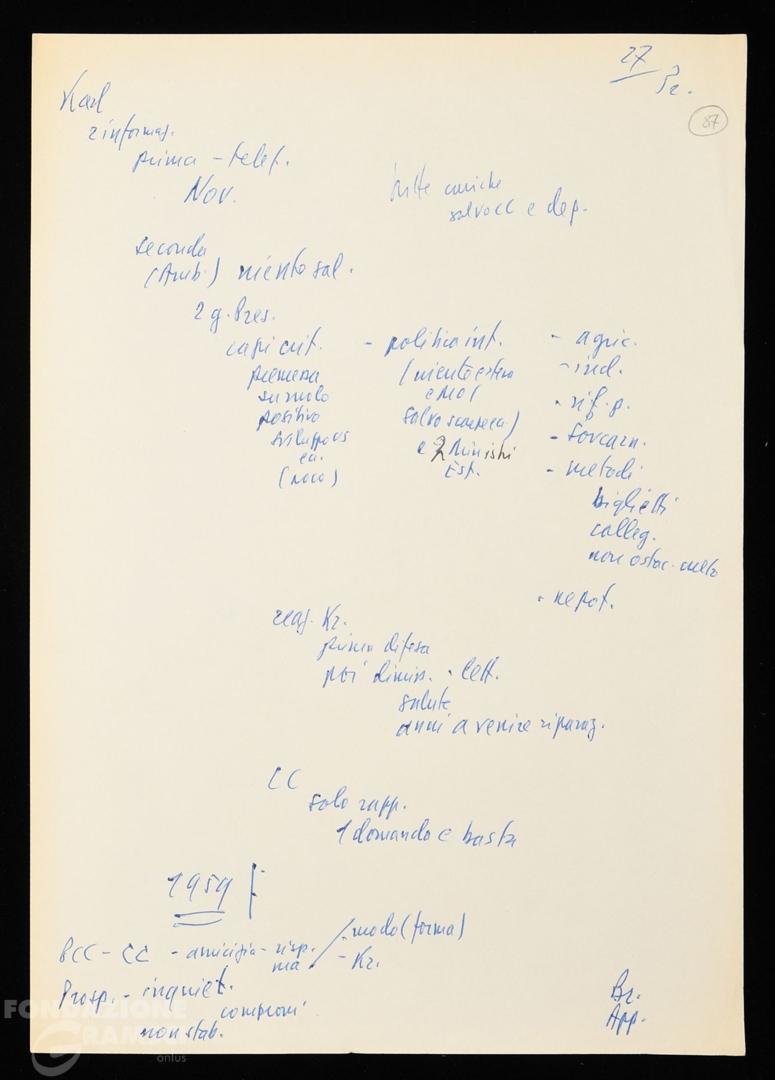 27
Pr.
87
Karl
2 informaz.
prima - telef.
Nov.
tutte amiche
salvo CC e dep.
seconda
(Amb.) niente sal.
2 g. Pres.
capi crit.
premessa
su ruolo
positivo
sviluppo US
ec.
(poco)
- politica int.
(niente estera
e MOI
salvo)
e 2 Ministri
Est.
- agric.
- ind.
- rif. p.
- sovcarn.
- metodi
biglietti
colleg.
non ostac.
- nepot.
reaz. Kr.
prima difesa
poi dimiss. - lett.
salute
anni a venire riparaz.
CC
solo rapp.
1 domanda e basta
1959
PCC - CC - amicizia - risp.
ma
- modo (forma)
- Kr.
Prosp. - inquiet.
compromi
non stab.
Br.
App.
FONDAZIONE
GRAMSCI
onlus